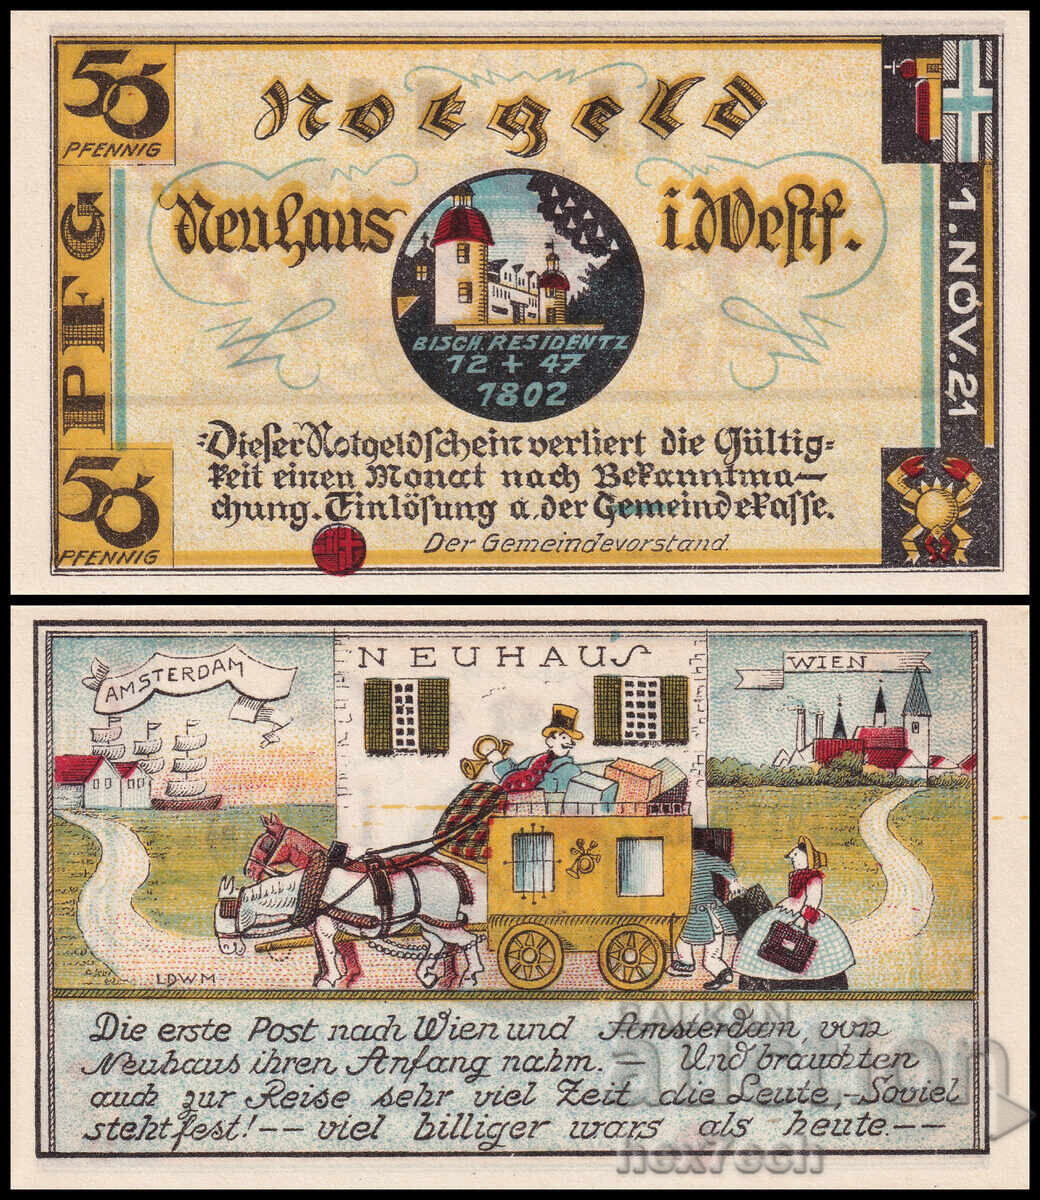 50
PFENNIG
Notgeld
PFG
Neuhaus i. Westf.
1. NOV. 21
BISCH. RESIDENTZ
12 + 47
1802
Dieser Notgeldschein verliert die Gültig=
keit einen Monat nach Bekanntma—
chung. Einlösung a. der Gemeindekasse.
50
PFENNIG
Der Gemeindevorstand.
AMSTERDAM
NEUHAUS
WIEN
LDWM
Die erste Post nach Wien und Amsterdam, von
Neuhaus ihren Anfang nahm. — Und brauchten
auch zur Reise sehr viel Zeit die Leute, - Soviel
steht fest! -- viel billiger wars als heute. --
BALKAN
auction
nextech